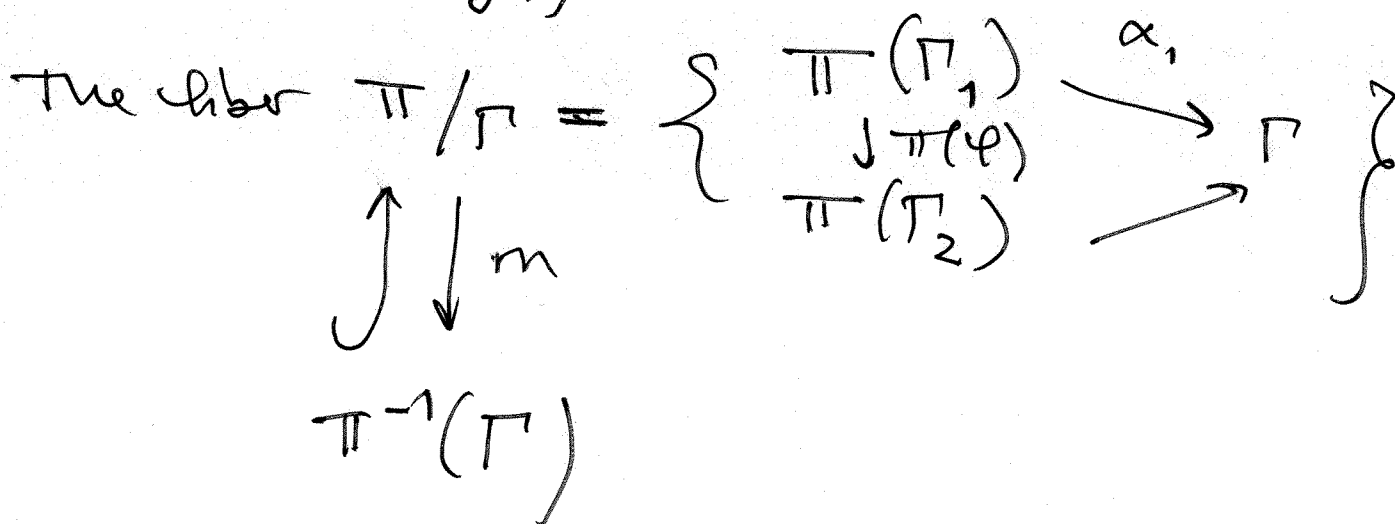 The fiber π/Γ = { π(Γ₁) α₁
↓ π(φ) Γ }
π(Γ₂)
m
π⁻¹(Γ)